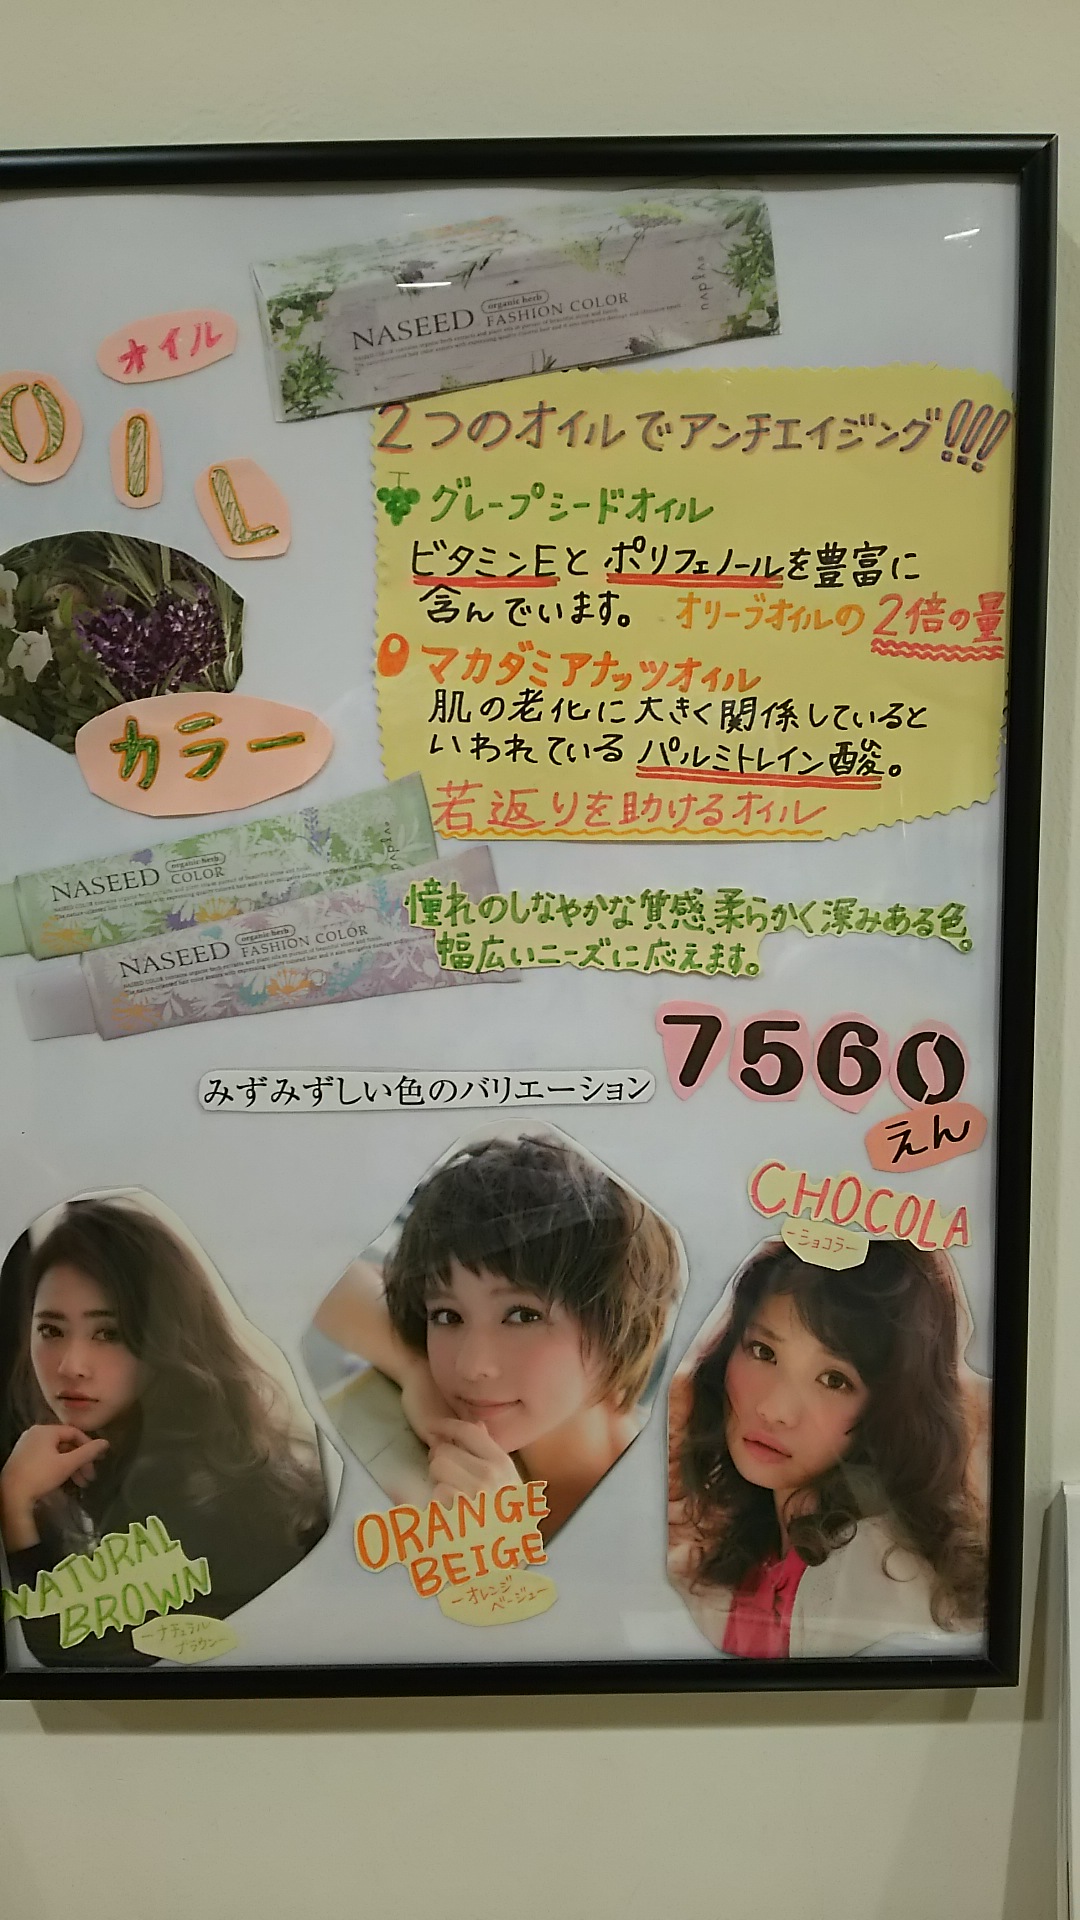 NASEED organic herb FASHION COLOR
オイル
OIL
カラー
2つのオイルでアンチエイジング!!!
グレープシードオイル
ビタミンEとポリフェノールを豊富に
含んでいます。 オリーブオイルの2倍の量
マカダミアナッツオイル
肌の老化に大きく関係していると
いわれているパルミトレイン酸。
若返りを助けるオイル
NASEED organic herb COLOR
NASEED organic herb FASHION COLOR
憧れのしなやかな質感、柔らかく深みある色。
幅広いニーズに応えます。
7560
えん
みずみずしい色のバリエーション
CHOCOLA
ーショコラー
ORANGE
BEIGE
ーオレンジ
ベージュー
NATURAL
BROWN
ーナチュラル
ブラウンー